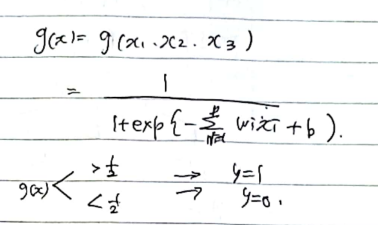 g(x) = g(x₁.x₂.x₃)
= 1 / 1+exp{-∑ wixi + b).
g(x) < >1/2 → y=1
<1/2 → y=0.